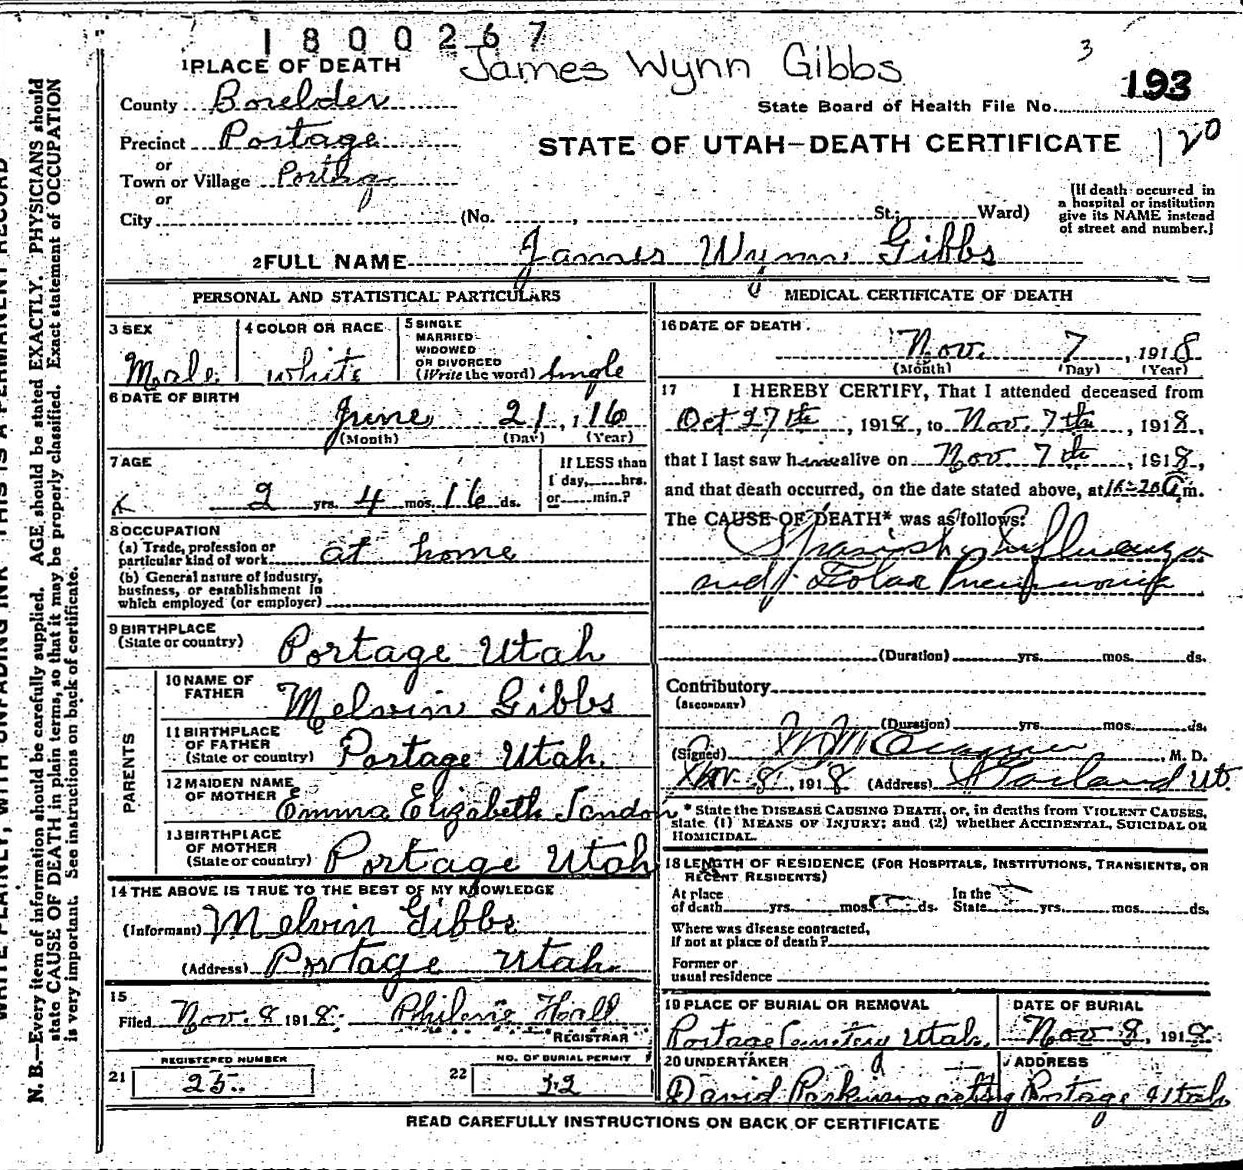 1800267
James Wynn Gibbs
3
193
1 PLACE OF DEATH
County Boxelder
State Board of Health File No.
Precinct Portage
STATE OF UTAH—DEATH CERTIFICATE
120
or
Town or Village Portage
or
City (No. , St.; Ward)
(If death occurred in
a hospital or institution
give its NAME instead
of street and number.)
2 FULL NAME James Wynn Gibbs
PERSONAL AND STATISTICAL PARTICULARS
3 SEX
Male
4 COLOR OR RACE
white
5 SINGLE
MARRIED
WIDOWED
OR DIVORCED
(Write the word) Single
6 DATE OF BIRTH
June 21, 1 16
(Month) (Day) (Year)
7 AGE
2 yrs. 4 mos. 16 ds.
If LESS than
1 day, hrs.
or min.?
8 OCCUPATION
(a) Trade, profession or
particular kind of work at home
(b) General nature of industry,
business, or establishment in
which employed (or employer)
9 BIRTHPLACE
(State or country) Portage Utah
PARENTS
10 NAME OF
FATHER Melvin Gibbs
11 BIRTHPLACE
OF FATHER
(State or country) Portage Utah.
12 MAIDEN NAME
OF MOTHER Emma Elizabeth
13 BIRTHPLACE
OF MOTHER
(State or country) Portage Utah
14 THE ABOVE IS TRUE TO THE BEST OF MY KNOWLEDGE
(Informant) Melvin Gibbs
(Address) Portage Utah.
15
Filed Nov. 8 1918. Hall
REGISTRAR
REGISTERED NUMBER
21 25.
NO. OF BURIAL PERMIT
22
MEDICAL CERTIFICATE OF DEATH
16 DATE OF DEATH
Nov. 7, 1918
(Month) (Day) (Year)
17 I HEREBY CERTIFY, That I attended deceased from
Oct 27th, 1918, to Nov. 7th, 1918,
that I last saw him alive on Nov 7th, 1918,
and that death occurred, on the date stated above, at m.
The CAUSE OF DEATH* was as follows:
Spanish Influenza
and Lobar Pneumonia
(Duration) yrs. mos. ds.
Contributory
(SECONDARY)
(Duration) yrs. mos. ds.
(Signed) M. D.
Nov. 8, 1918 (Address) Garland Ut.
* State the DISEASE CAUSING DEATH, or, in deaths from VIOLENT CAUSES,
state (1) MEANS OF INJURY; and (2) whether ACCIDENTAL, SUICIDAL OR
HOMICIDAL.
18 LENGTH OF RESIDENCE (FOR HOSPITALS, INSTITUTIONS, TRANSIENTS, OR
RECENT RESIDENTS)
At place In the
of death yrs. mos. ds. State yrs. mos. ds.
Where was disease contracted,
if not at place of death?
Former or
usual residence
19 PLACE OF BURIAL OR REMOVAL
Portage Cemetery Utah.
DATE OF BURIAL
Nov 8, 1918
20 UNDERTAKER
David acting
ADDRESS
Portage Utah
READ CAREFULLY INSTRUCTIONS ON BACK OF CERTIFICATE
WRITE PLAINLY, WITH UNFADING INK—THIS IS A PERMANENT RECORD
N. B.—Every item of information should be carefully supplied. AGE should be stated EXACTLY. PHYSICIANS should
state CAUSE OF DEATH in plain terms, so that it may be properly classified. Exact statement of OCCUPATION
is very important. See instructions on back of certificate.